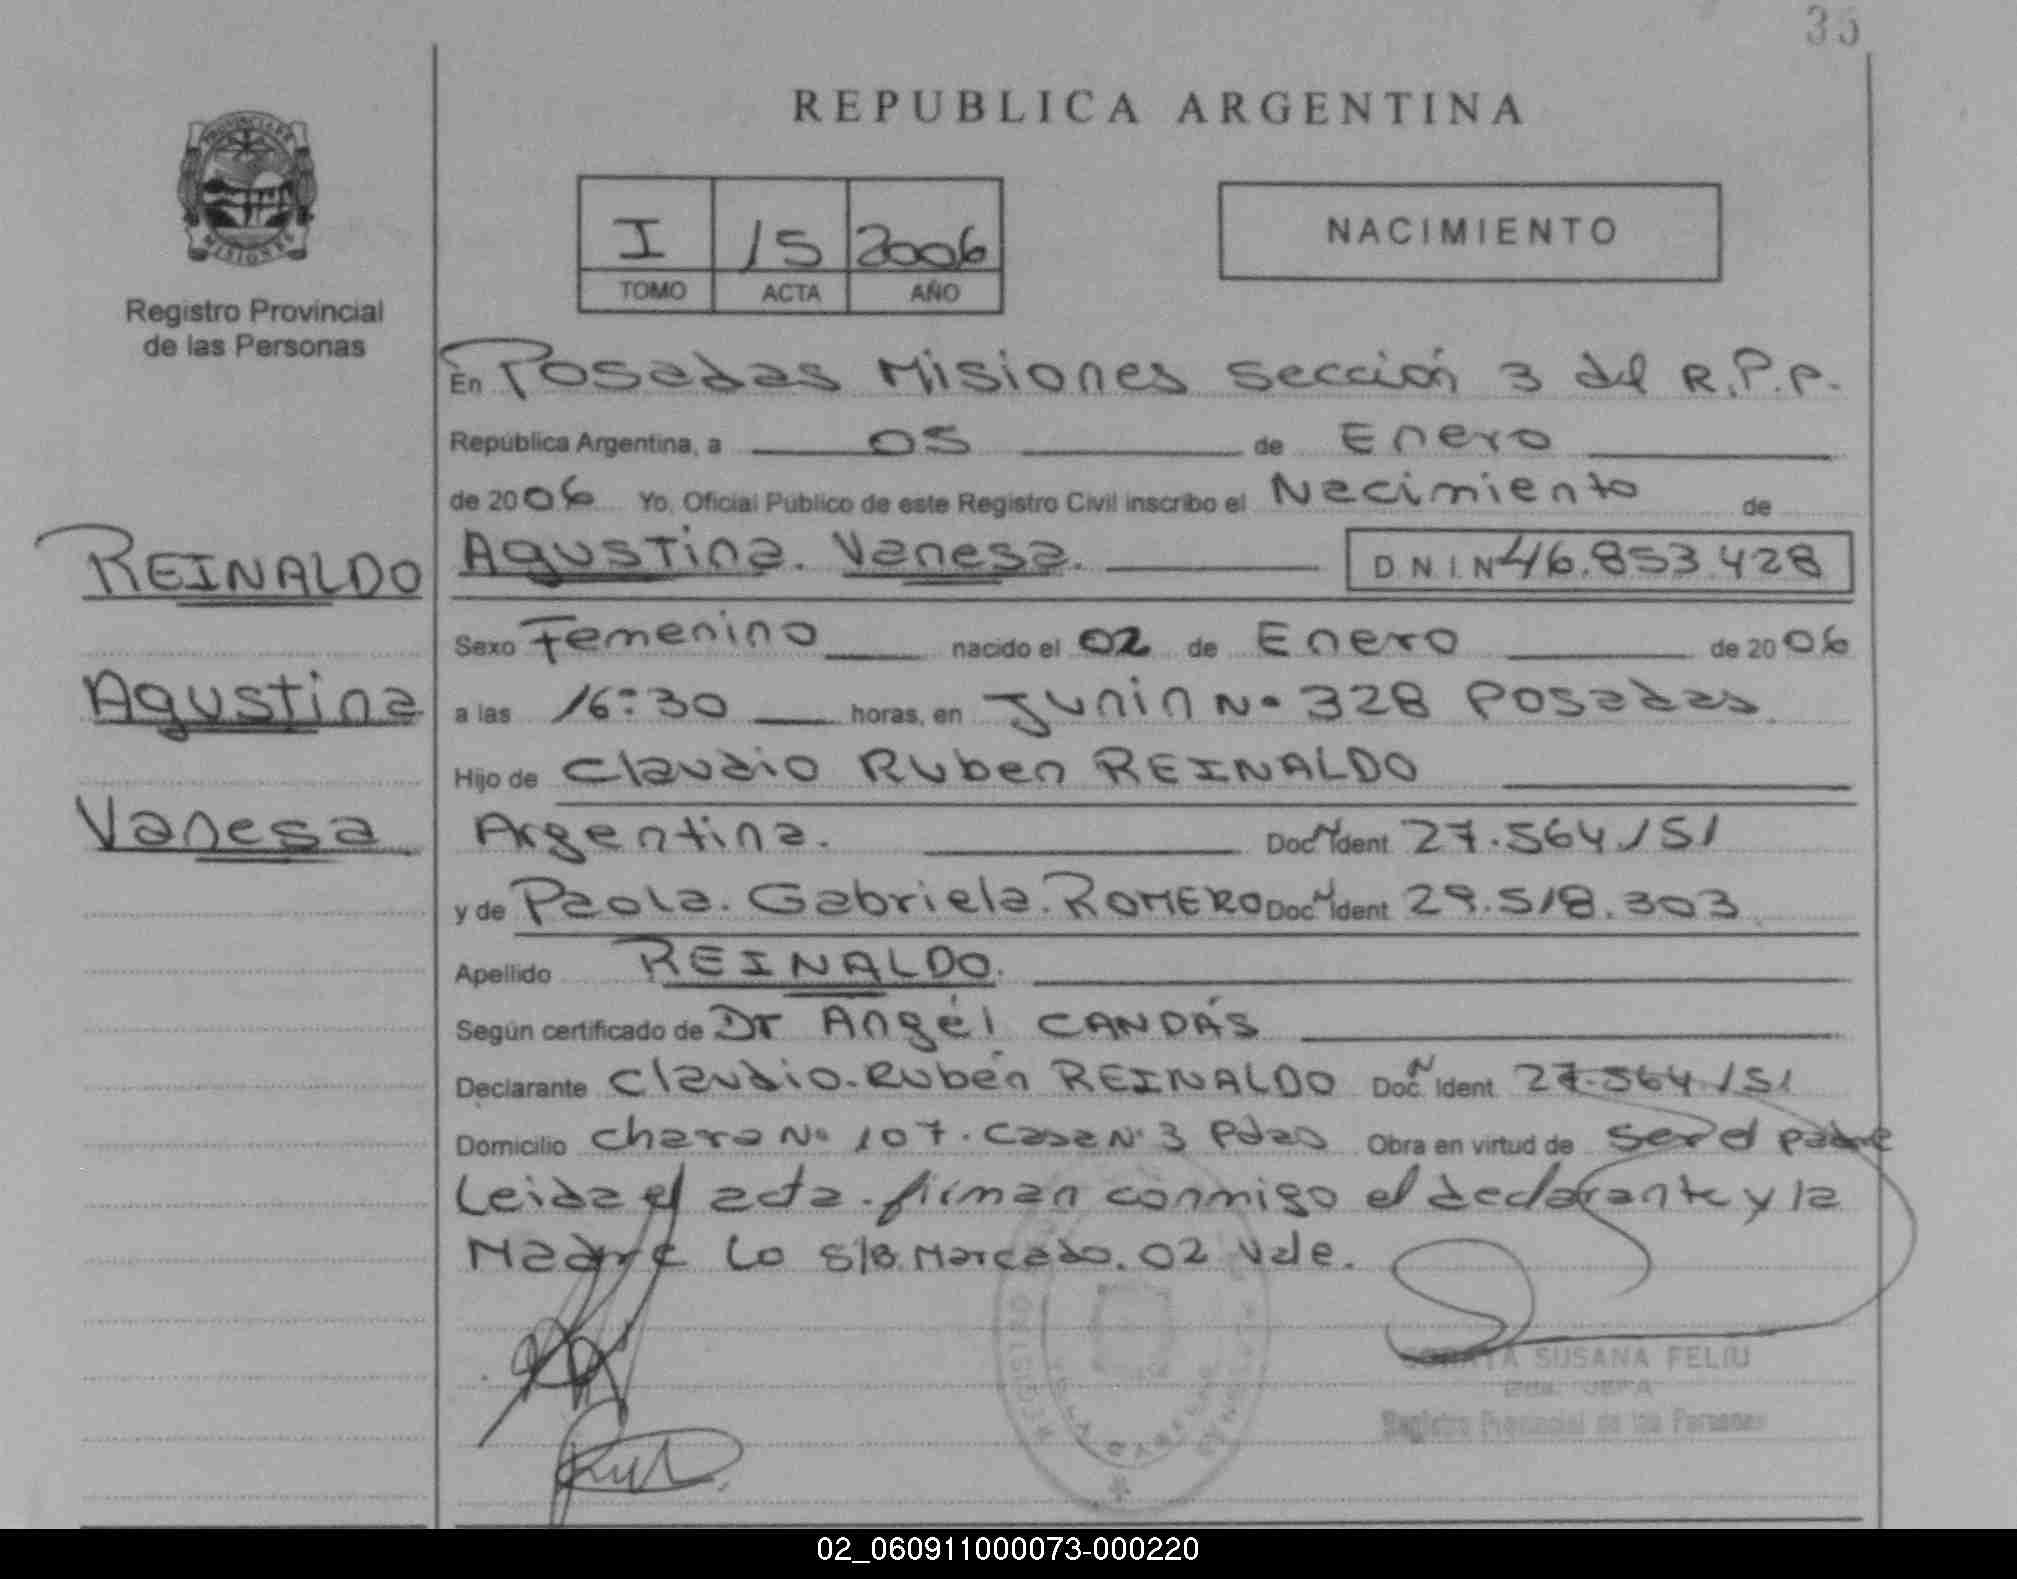 35
REPUBLICA ARGENTINA
PROVINCIA DE
MISIONES
Registro Provincial
de las Personas
I 15 2006
TOMO ACTA AÑO
NACIMIENTO
En Posadas Misiones sección 3 del R.P.P.
República Argentina, a 05 de Enero
de 2006 Yo, Oficial Público de este Registro Civil inscribo el Nacimiento de
REINALDO
Agustina
Vanesa
Agustina. Vanesa. D N I N 46.853.428
Sexo Femenino nacido el 02 de Enero de 2006
a las 16:30 horas, en Junin No 328 Posadas.
Hijo de Claudio Ruben REINALDO
Argentina. Doc N Ident 27.564.151
y de Paola. Gabriela. ROMERO Doc N Ident 29.518.303
Apellido REINALDO.
Según certificado de Dr Angél CANDÁS
Declarante Claudio. Rubén REINALDO Doc. N Ident 27.564.151
Domicilio Chacra No 107. Casa N° 3 Pdas Obra en virtud de Ser el padre
Leida el acta. firman conmigo el declarante y la
Madre Lo S/B. Marcado. 02 Vale.
SORAYA SUSANA FELIU
Registro Provincial de las Personas
REGISTRO
02_060911000073-000220